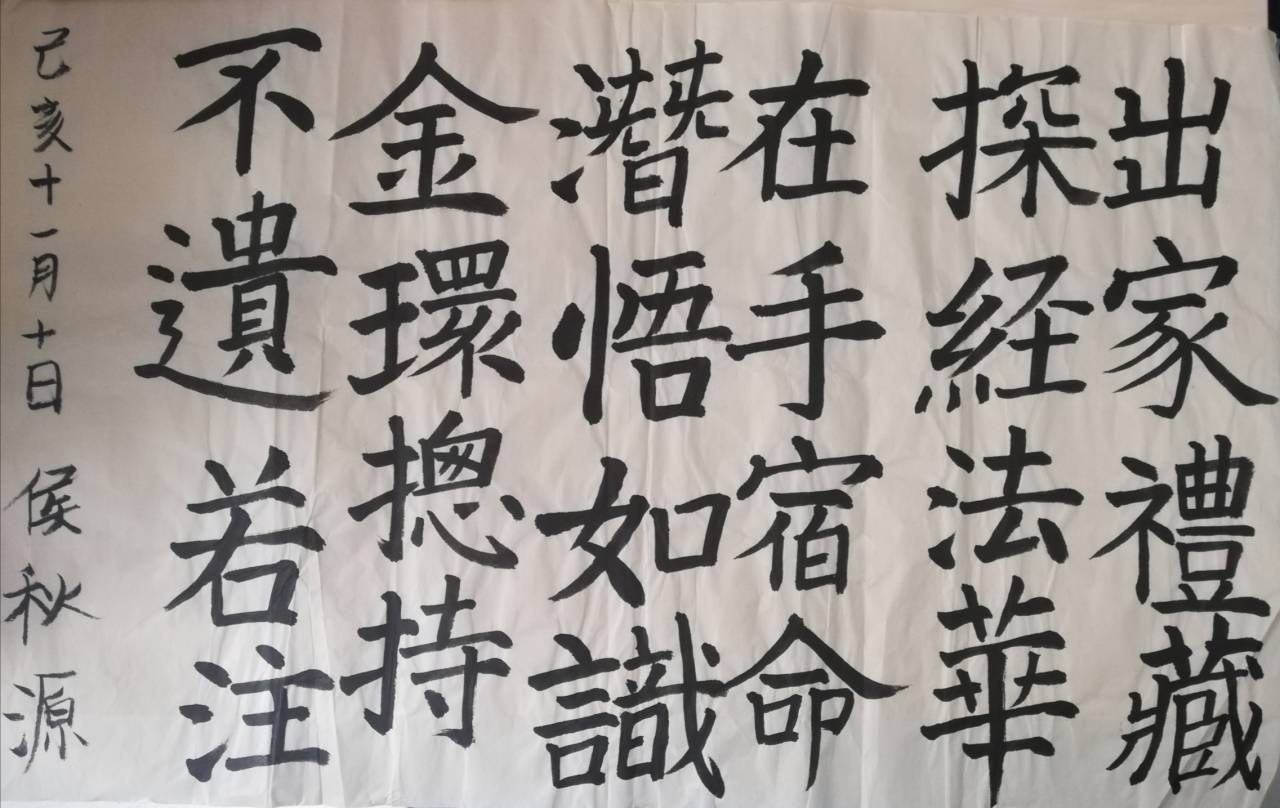 出家禮藏
探経法華
在手宿命
潛悟如識
金環摠持
不遺若注
己亥十一月十日 侯秋源